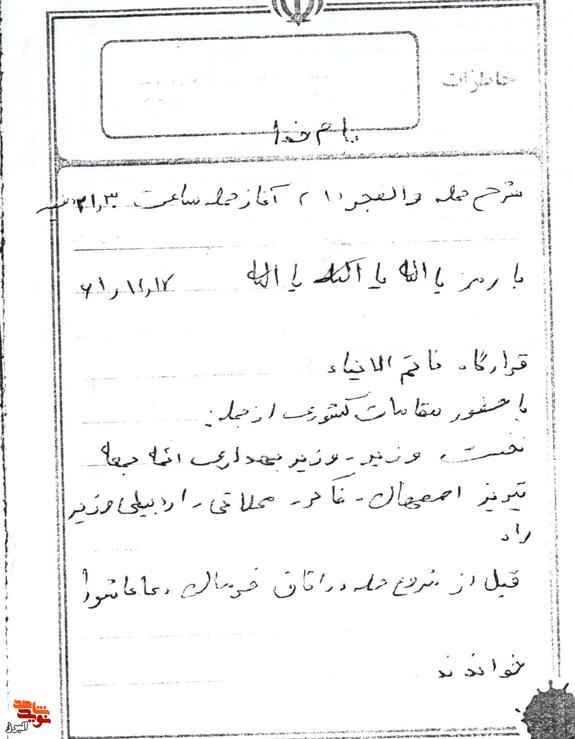 خاطرات
بنام خدا
شرح حمله والفجر (۱) آغاز حمله ساعت ۲۱٫۳۰
با رمز یا الله یا الله یا الله ۶۱٫۱۱٫۱۷
قرارگاه خاتم الانبیاء
با حضور مقامات کشوری از جمله:
نخست وزیر - وزیر بهداری ائمه جمعه
تبریز اصفهان - - محلاتی - اردبیلی وزیر
راه
قبل از شروع حمله در اتاق فرماندهان دعا عاشورا
خواندند
نوید شاهد
البرز